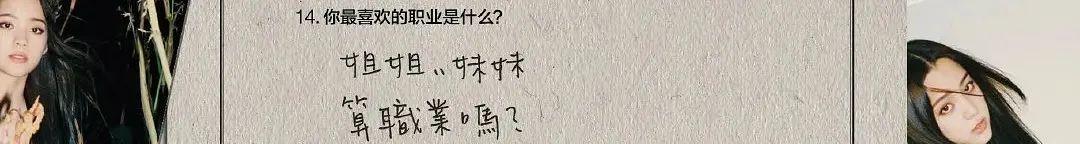 14. 你最喜欢的职业是什么?
姐姐、、妹妹
算職業嗎?